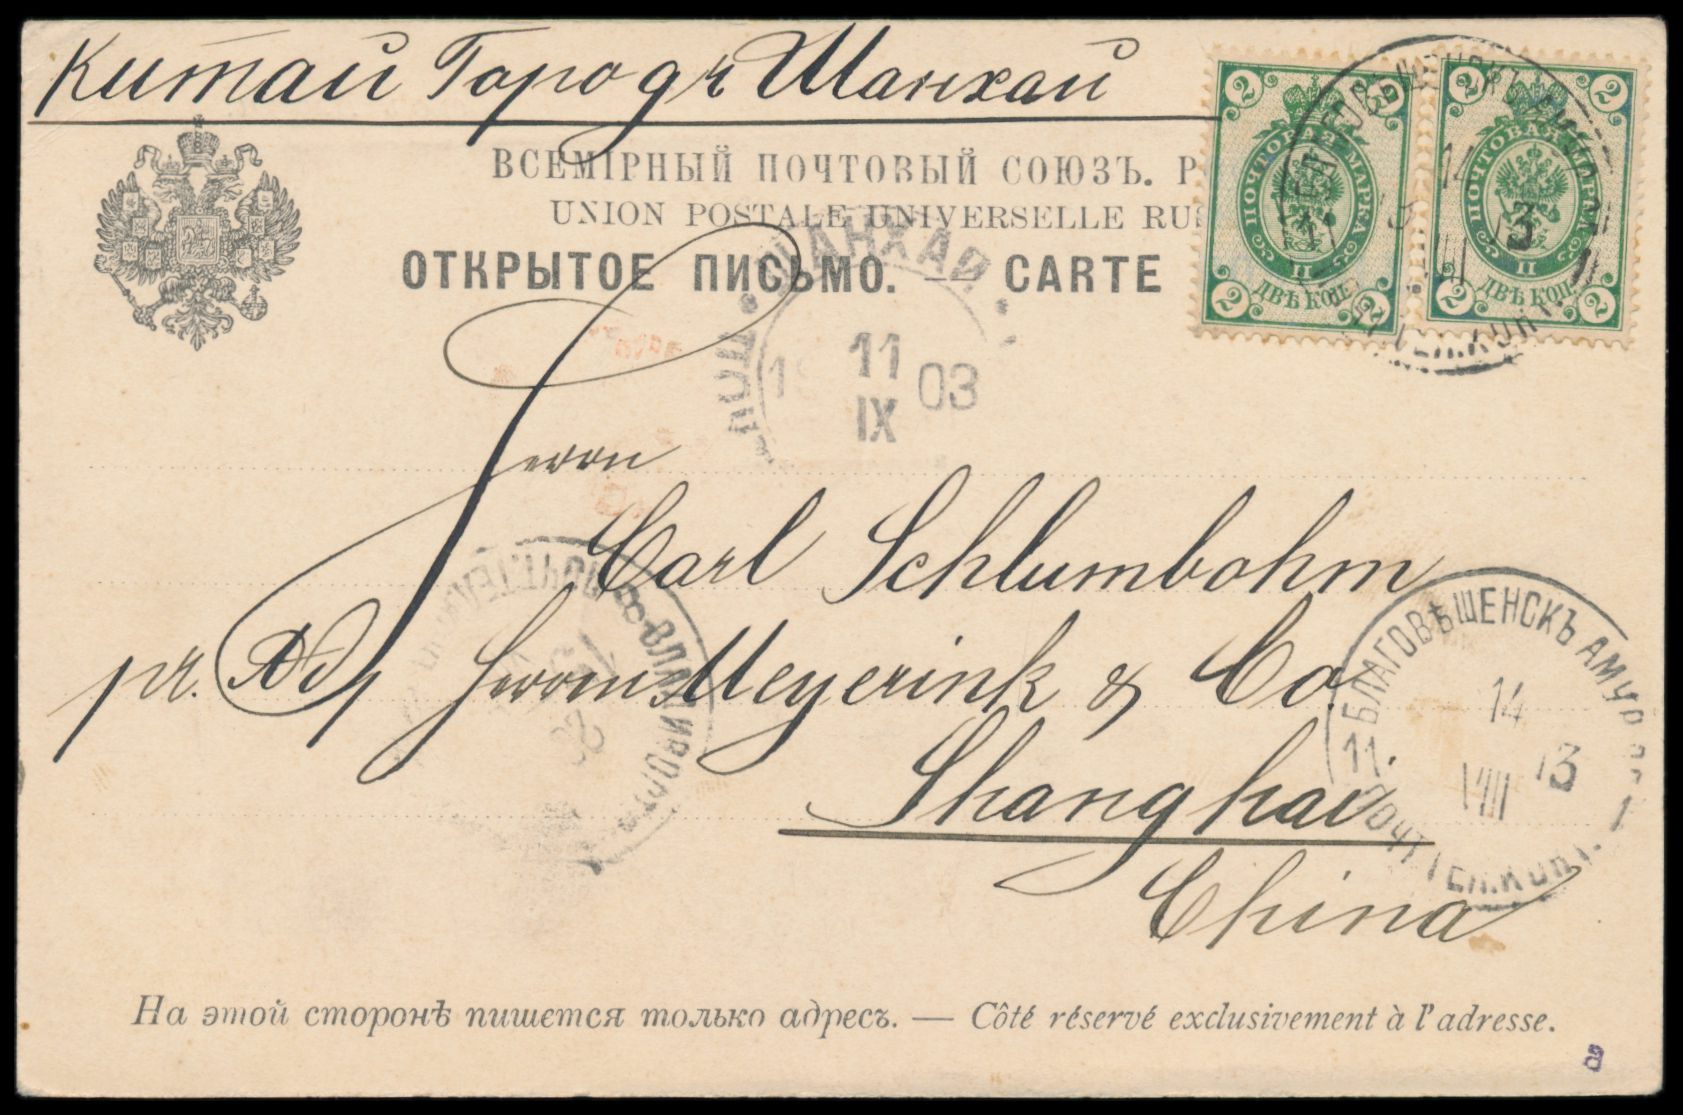 Китай Городъ Шанхай
ВСЕМІРНЫЙ ПОЧТОВЫЙ СОЮЗЪ. Р
UNION POSTALE UNIVERSELLE RUS
ОТКРЫТОЕ ПИСЬМО. — CARTE
2 2
ПОЧТОВАЯ МАРКА
II
ДВѢ КОП.
2 2
2 2
ПОЧТОВАЯ МАРКА
II
ДВѢ КОП.
2 2
14
3
VIII
ШАНХАЙ
ПОЧ
11
19 03
IX
Herrn
Carl Schlumbohm
pr. Adr Herren Meyerink & Co.
Shanghai
China
ВЛАДИВОСТ
БЛАГОВѢЩЕНСКЪ АМУР
14
11 3
VIII
ПОЧТ ТЕЛ. КОНТ.
На этой сторонѣ пишется только адресъ. — Côté réservé exclusivement à l'adresse.